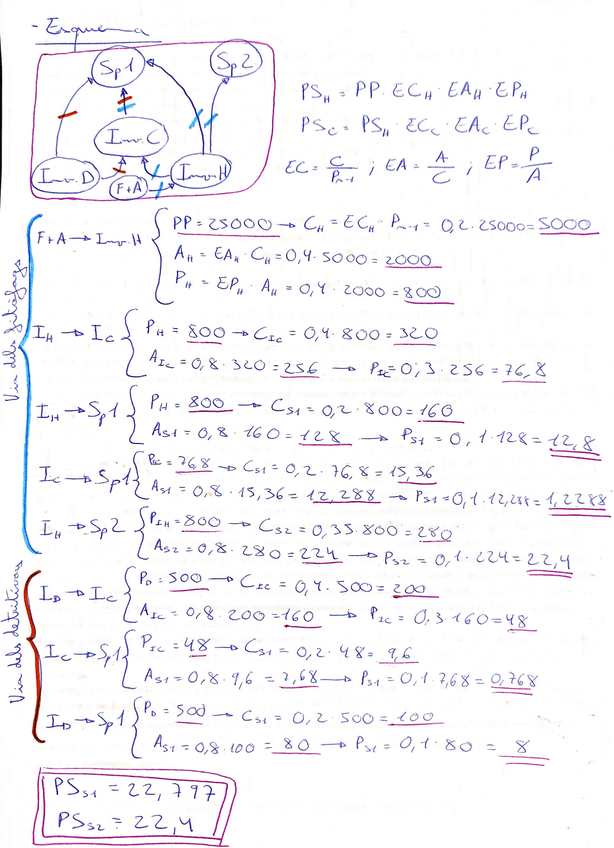 - Esquema
Sp1
Sp2
Inv.C
Inv.D
F+A
Inv.H
PS_H = PP · EC_H · EA_H · EP_H
PS_C = PS_H · EC_C · EA_C · EP_C
EC = C/P_n-1 ; EA = A/C ; EP = P/A
Via dels fitòfags
F+A → Inv.H { PP = 25000 → C_H = EC_H · P_n-1 = 0,2 · 25000 = 5000
A_H = EA_H · C_H = 0,4 · 5000 = 2000
P_H = EP_H · A_H = 0,4 · 2000 = 800
I_H → I_C { P_H = 800 → C_IC = 0,4 · 800 = 320
A_IC = 0,8 · 320 = 256 → P_IC = 0,3 · 256 = 76,8
I_H → Sp1 { P_H = 800 → C_S1 = 0,2 · 800 = 160
A_S1 = 0,8 · 160 = 128 → P_S1 = 0,1 · 128 = 12,8
I_C → Sp1 { P_IC = 76,8 → C_S1 = 0,2 · 76,8 = 15,36
A_S1 = 0,8 · 15,36 = 12,288 → P_S1 = 0,1 · 12,288 = 1,2288
I_H → Sp2 { P_IH = 800 → C_S2 = 0,35 · 800 = 280
A_S2 = 0,8 · 280 = 224 → P_S2 = 0,1 · 224 = 22,4
Via dels detritívors
I_D → I_C { P_D = 500 → C_IC = 0,4 · 500 = 200
A_IC = 0,8 · 200 = 160 → P_IC = 0,3 · 160 = 48
I_C → Sp1 { P_IC = 48 → C_S1 = 0,2 · 48 = 9,6
A_S1 = 0,8 · 9,6 = 7,68 → P_S1 = 0,1 · 7,68 = 0,768
I_D → Sp1 { P_D = 500 → C_S1 = 0,2 · 500 = 100
A_S1 = 0,8 · 100 = 80 → P_S1 = 0,1 · 80 = 8
PS_S1 = 22,797
PS_S2 = 22,4